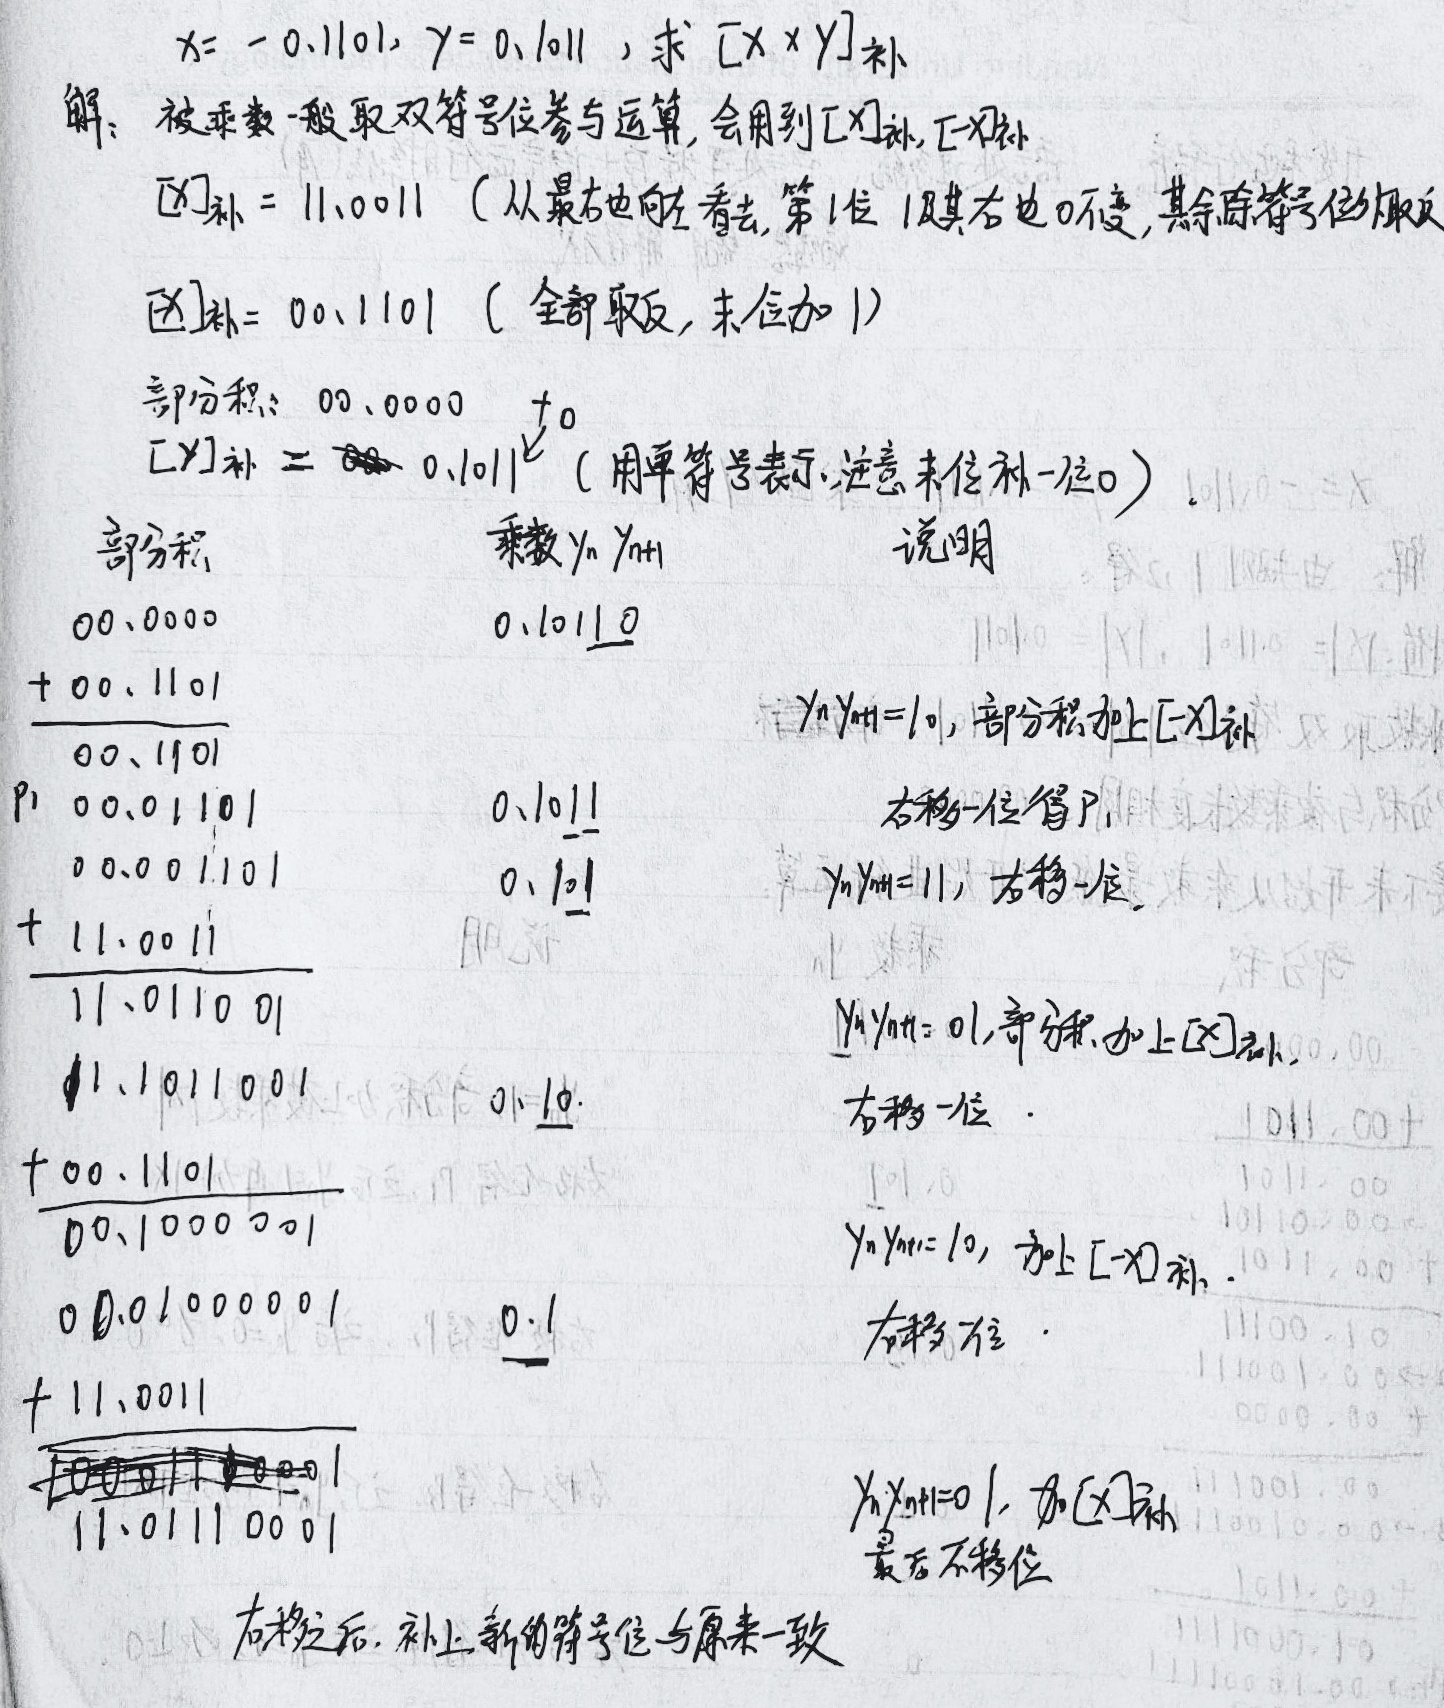 x= -0.1101, y= 0.1011 , 求 [X×Y]补
解: 被乘数一般取双符号位参与运算, 会用到[X]补, [-X]补
[X]补 = 11.0011 (从最右边向左看去, 第1位 1及其右边0不变, 其余除符号位外取反
[-X]补= 00.1101 ( 全部取反, 末位加1)
部分积: 00.0000 +0
[Y]补 = 0.1011 (用单符号表示, 注意末位补一位0) .
部分积 乘数 yn yn+1 说明
00.0000 0.10110
+ 00.1101 yn yn+1=10, 部分积加上[-X]补
00.1101
P1 00.01101 0.1011 右移一位得P1
00.001101 0.101 yn yn+1=11, 右移一位.
+ 11.0011
11.011001 yn yn+1= 01, 部分积加上[X]补,
11.1011001 0.10. 右移一位 .
+ 00.1101
00.1000001 yn yn+1=10, 加上[-X]补.
00.01000001 0.1 右移一位 .
+ 11.0011
11.01110001 yn yn+1=01, 加[X]补
最后不移位
右移之后, 补上新的符号位与原来一致